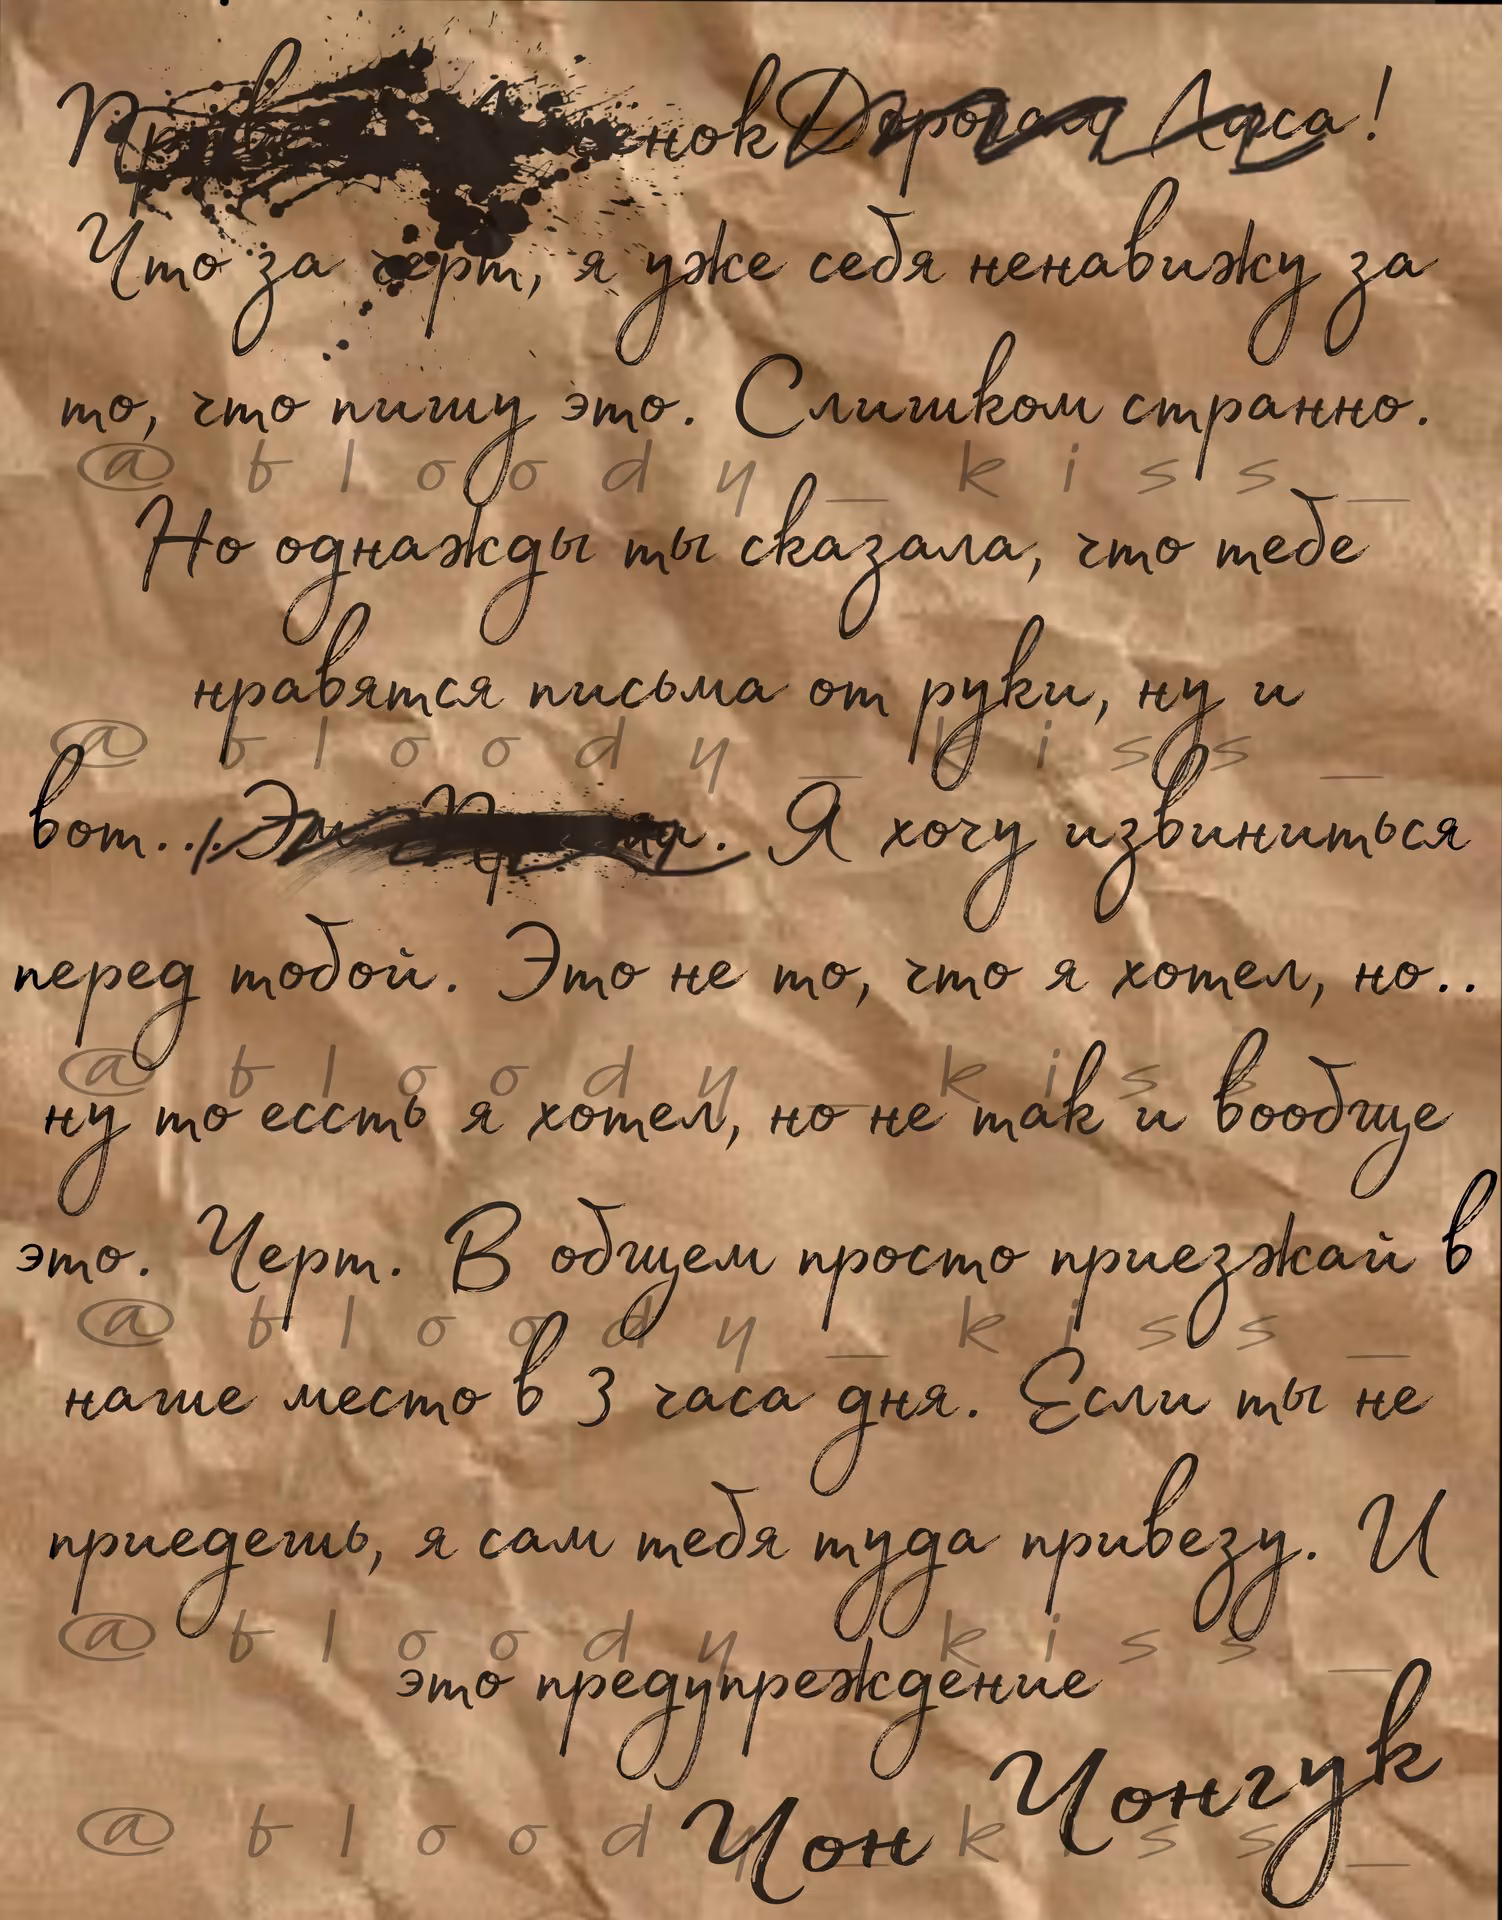 Дорогая !
Что за черт, я уже себя ненавижу за
то, что пишу это. Слишком странно.
@bloody_kiss_
Но однажды ты сказала, что тебе
нравятся письма от руки, ну и
@bloody_kiss_
вот... Я хочу извиниться
перед тобой. Это не то, что я хотел, но..
@bloody_kiss_
ну то ессть я хотел, но не так и вообще
это. Черт. В общем просто приезжай в
@bloody_kiss_
наше место в 3 часа дня. Если ты не
приедешь, я сам тебя туда привезу. И
@bloody_kiss_
это предупреждение
Чон Чонгук
@bloody_kiss_